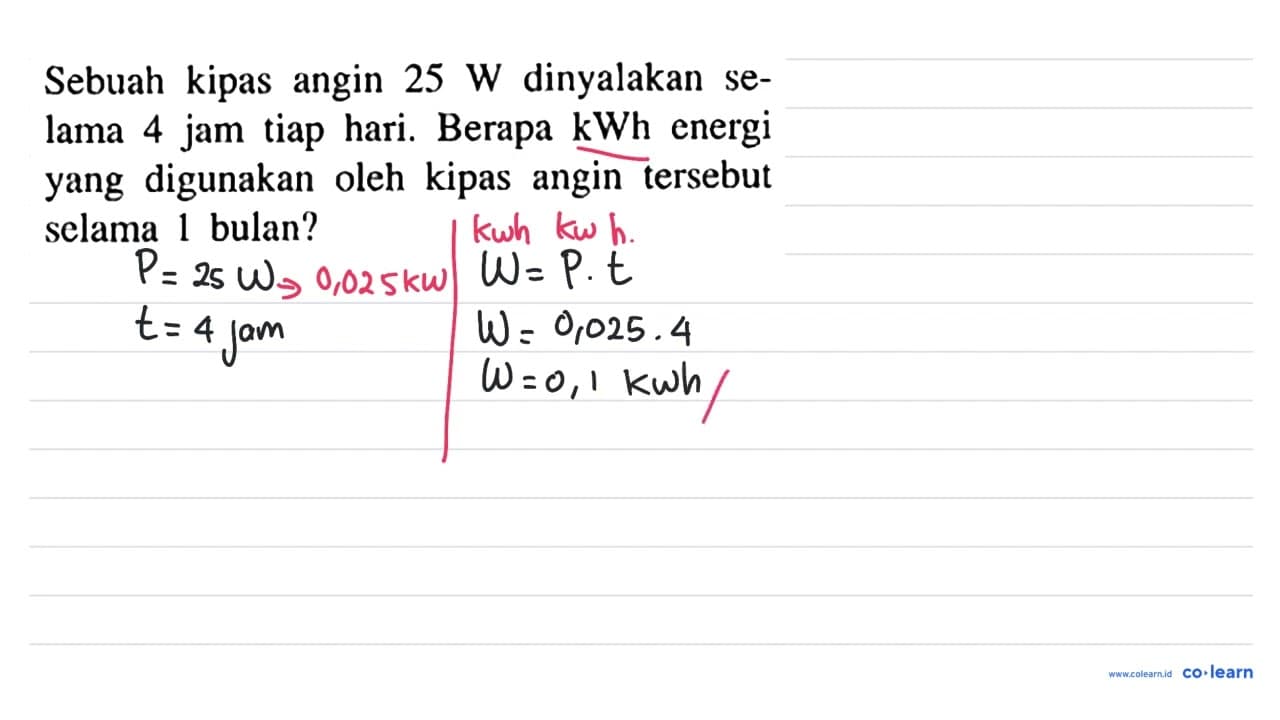 Sebuah kipas angin 25 W dinyalakan se-
lama 4 jam tiap hari. Berapa kWh energi
yang digunakan oleh kipas angin tersebut
selama 1 bulan?
P = 25 W → 0,025 kW
t = 4 jam
kwh kw h.
W = P . t
W = 0,025 . 4
W = 0,1 kwh /
www.colearn.id co·learn